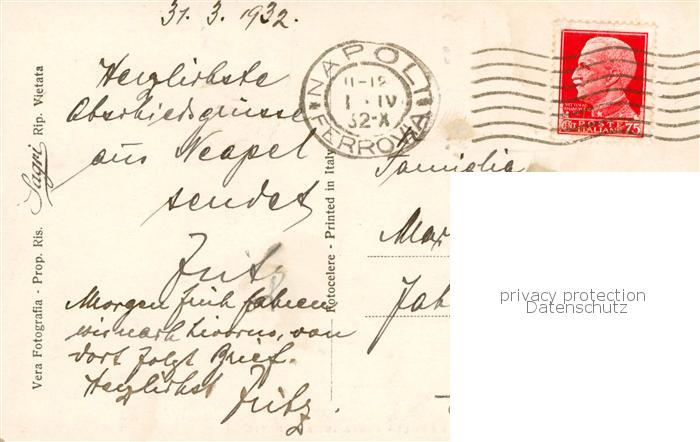 31. 3. 1932.
Herzlichste
Abschiedsgrüsse
aus Neapel
sendet
Fritz
Morgen früh fahren
wir nach Livorno, von
dort folgt Brief.
Herzlichst
Fritz.
Vera Fotografia - Prop. Ris. Sagri Rip. Vietata
Fotocelere - Printed in Italy
NAPOLI
11-12
1 · IV
32-X
FERROVIA
POSTE
ITALIANE
CENT 75
Famiglia
Max
privacy protection
Datenschutz